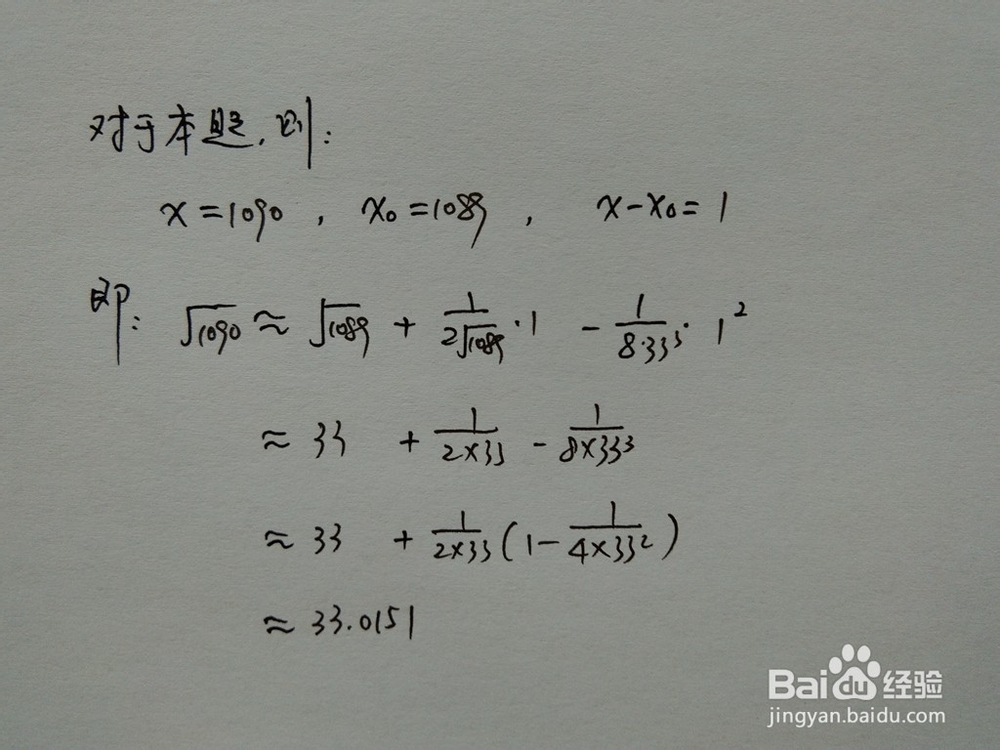 对于本题,则:
x=1090, x₀=1089, x-x₀=1
即: √1090 ≈ √1089 + 1/(2√1089)·1 - 1/(8·33³)·1²
≈ 33 + 1/(2×33) - 1/(8×33³)
≈ 33 + 1/(2×33)(1-1/(4×33²))
≈ 33.0151
Baidu经验
jingyan.baidu.com